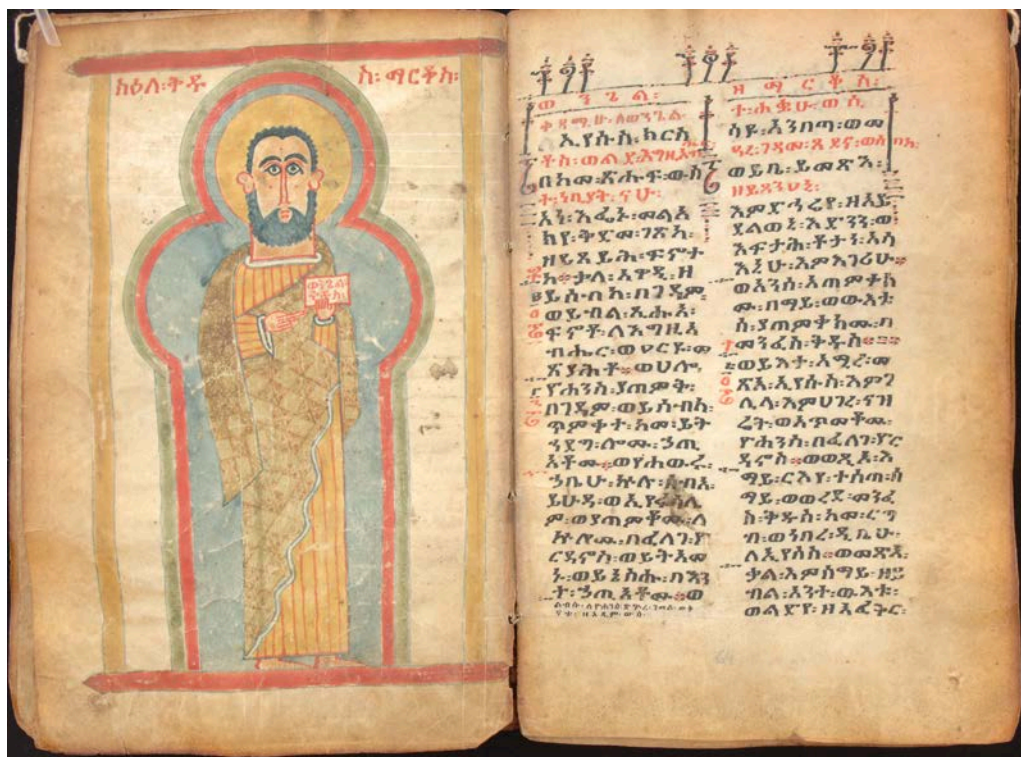 ስዕለ፡ ቅዱ
ስ፡ ማርቆስ፡
ወንጌል፡
ቅዱስ፡
ወ ን ጌ ል፡
ቀዳሚሁ፡ ለወንጌለ
ኢየሱስ፡ ክርስ
ቶስ፡ ወልደ፡ እግዚአ
በከመ፡ ጽሑፍ፡ ውስ
ተ፡ ነቢያት፡ ናሁ፡
አነ፡ እፌኑ፡ መልአ
ክየ፡ ቅድመ፡ ገጽከ፡
ዘይጸይሕ፡ ፍኖተ
ከ። ቃለ፡ ዐዋዲ፡ ዘ
ይሰብክ፡ በገዳም፡
ወይብል፡ ጺሑ፡
ፍኖቶ፡ ለእግዚአ
ብሔር፡ ወዐርዩ፡ መ
ጽያሕቶ። ወሀሎ፡
ዮሐንስ፡ ያጠምቅ፡
በገዳም፡ ወይሰብክ፡
ጥምቀተ፡ ከመ፡ ይት
ኀደግ፡ ሎሙ፡ ኃጢ
አቶሙ። ወየሐውሩ፡
ኃቤሁ፡ ኵሉ፡ ሰብአ፡
ይሁዳ፡ ወኢየሩሳሌ
ም፡ ወያጠምቆሙ፡ ለ
ኵሎሙ፡ በፈለገ፡ ዮ
ርዳኖስ፡ ወይትአመ
ኑ፡ ወይኔስሑ፡ በእን
ተ፡ ኃጢአቶሙ። ወ
ዘ ማ ር ቆ ስ፡
ሳዩ፡ አንበጣ፡ ወመ
ወይቤ፡ ይመጽእ፡
ዘይጸንዐኒ፡
እምድኅሬየ፡ ዘኢይ
ደልወኒ፡ እድንን፡ ወ
እፍታሕ፡ ቶታነ፡ አሳ
እኒሁ፡ እምእገሪሁ።
ወአንሰ፡ አጠምቀክ
ሙ፡ በማይ፡ ወውእቱ
ሰ፡ ያጠምቀክሙ፡ በ
መንፈስ፡ ቅዱስ።
ወይእተ፡ አሚረ፡ መ
ጽአ፡ ኢየሱስ፡ እምገ
ሊላ፡ እምሀገረ፡ ናዝ
ሬት፡ ወአጥመቆ፡
ዮሐንስ፡ በፈለገ፡ ዮር
ዳኖስ። ወወፂኦ፡ እ
ማይ፡ ርእየ፡ ተሰጠ፡ ሰ
ማይ፡ ወወረደ፡ መንፈ
ስ፡ ቅዱስ፡ ከመ፡ ርግ
ብ፡ ወነበረ፡ ዲቤሁ፡
ለኢየሱስ። ወመጽአ፡
ቃል፡ እምሰማይ፡ ዘይ
ብል፡ አንተ፡ ውእቱ፡
ወልድየ፡ ዘአፈቅር፡